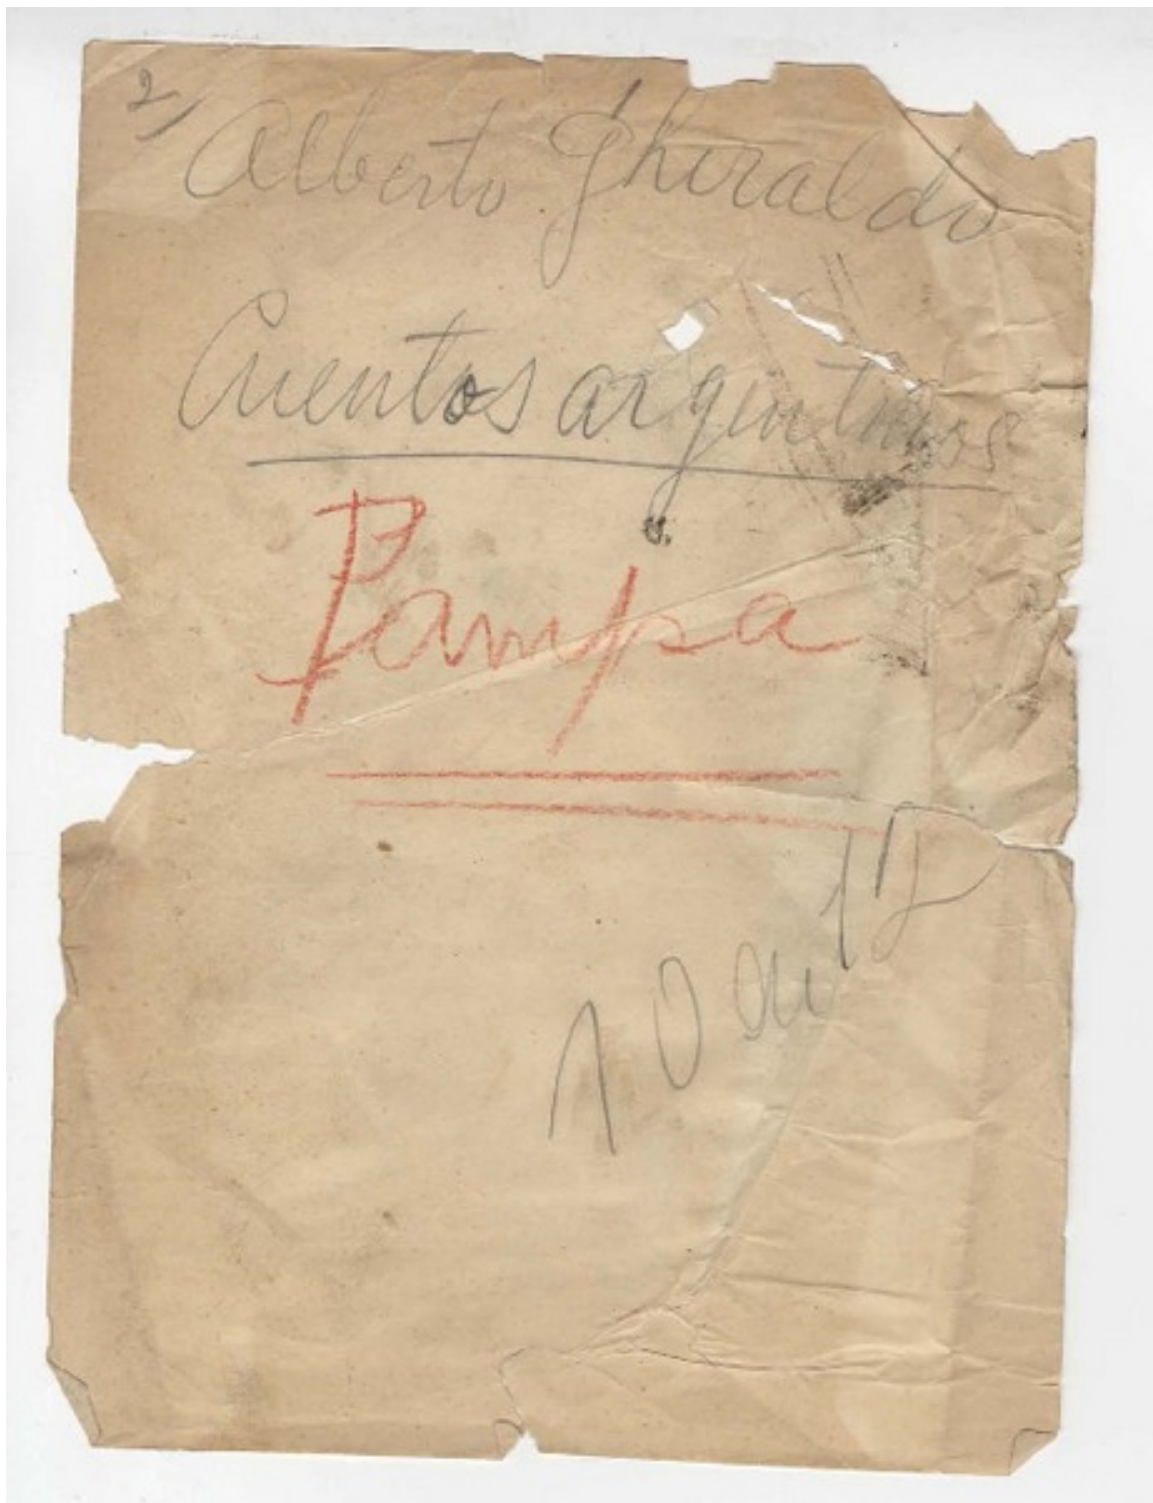 2/
Alberto Ghiraldo
Cuentos argentinos
Pampa
10 au 12